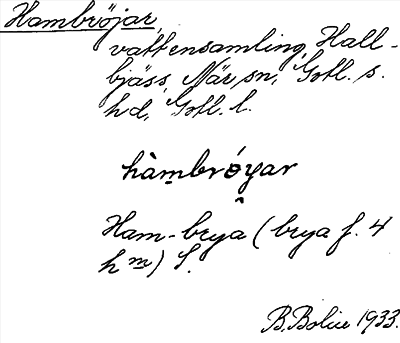 Hambröjar,
vattensamling, Hall-
bjäss, När, sn, Gotl. s.
hd, Gotl. l.
hàmbrǿyar
Ham-brya (brya f. 4
hm) S.
B. Bolin 1933.